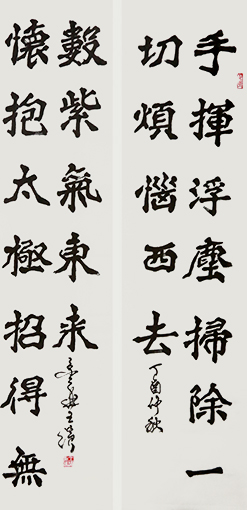 手揮浮塵掃除一
切煩惱西去
丁酉仲秋
懷抱太極招得無
數紫氣東來